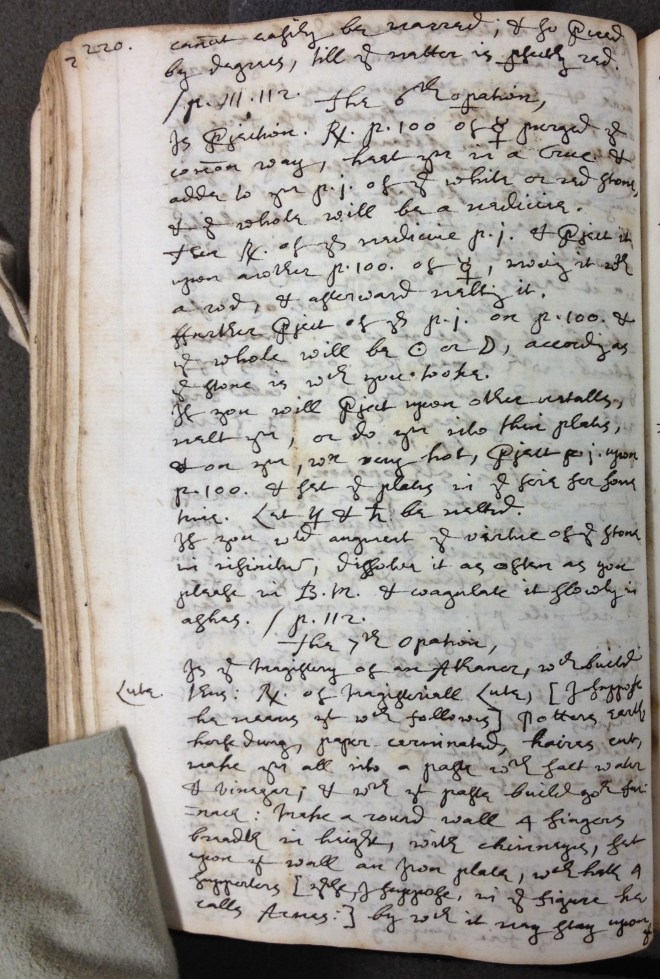 2220.
cañot easily be marred; & so ꝓceed
by degrees, till yͤ matter is ꝑfectly red.
/ p. 111. 112. The 6ᵗʰ opation,
Is ꝓjection. ℞. p. 100 of ☿ purged yͤ
com̄on way, heat yᵐ in a Cruc. &
adde to yᵐ p. j. of yͤ white or red stone,
& yͤ whole will be a medicine.
Then ℞. of yˢ medicine p. j. & ꝓject it
upon another p. 100. of ☿, moving it wᵗʰ
a rod, & afterward melting it.
ffurther ꝓject of yˢ p. j. on p. 100. &
yͤ whole will be ☉ or ☽, accordg as
yͤ stone is wᶜʰ you tooke.
If you will ꝓject upon other metalls,
melt yᵐ, or do yᵐ into thin plates,
& on yᵐ, wⁿ very hot, ꝓject p. j. upon
p. 100. & set yͤ plates in yͤ fire for some
time. Let ♃ & ♄ be melted.
If you wᵈ augment yͤ virtue of yͤ stone
in infinitum, dissolve it as often as you
please in B. M. & coagulate it slowly in
ashes. / p. 112.
The 7ᵗʰ opation,
Is yͤ Magistery of an Athanor, wᶜʰ build
Lute. thus: ℞. of Magisteriall Lute, [I suppose
he means yᵗ wᶜʰ follows] Potters earth
horse dung, paper comminated, haires cut,
make yᵐ all into a paste wᵗʰ salt water
& vinegar; & wᵗʰ yᵗ paste build yoʳ fur=
=nace: Make a round wall 4 fingers
breadth in height, with chimneyes, set
upon yᵗ wall an Iron plate, wᶜʰ hath 4
supporters [, I suppose, in yͤ figure he
calls Armes:] by wᶜʰ it may stay upon
yͤ